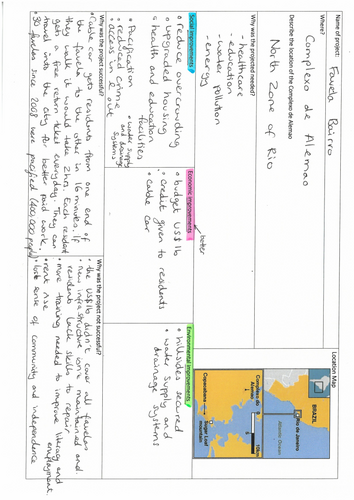 Name of project: Favela Bairro
Where?
Complexo de Alemao
Describe the location of the Complexo de Alemao
North Zone of Rio
Why was the project needed?
- healthcare
- education
- water pollution
- energy
Location Map
BRAZIL
Rio de Janeiro
Atlantic Ocean
Complexo do
Alemao
0
10km
Copacabana
Sugar Loaf
mountain
better
Social improvements
• reduce overcrowding
• upgraded housing
• health and education
facilities
• Pacification
• reduced crime
• access in/out
• water supply
and drainage
systems
Economic improvements
• budget US$1b
• credit given to residents
• cable car
Environmental improvements
• hillsides secured
• water supply and
drainage systems
Why was the project successful?
• Cable car gets residents from one end of
the favela to the other in 16 minutes. If
they walk it would take 2hrs. Each resident
gets a free return ticket everyday. They can
travel into the city for better paid work.
• 30 favelas since 2008 were pacified (400,000 people)
Why was the project not successful?
• the US$1b didn't cover all favelas
• new infrastructure isn't maintained and
residents lack skills to repair
• more training needed to improve literacy and
employment
• rent rise
• lost sense of community and independence